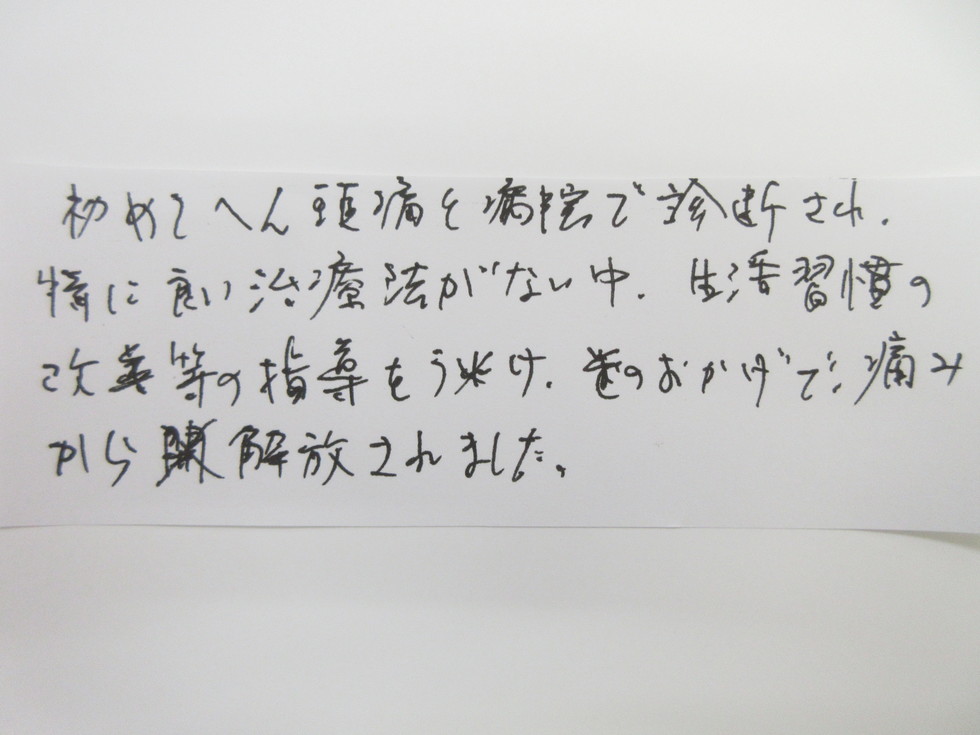 初めてへん頭痛を病院で診断され、
特に良い治療法がない中、生活習慣の
改善等の指導をうけ、そのおかげで、痛み
から解放されました。